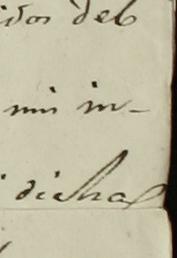 idos del
mi in-
dichas